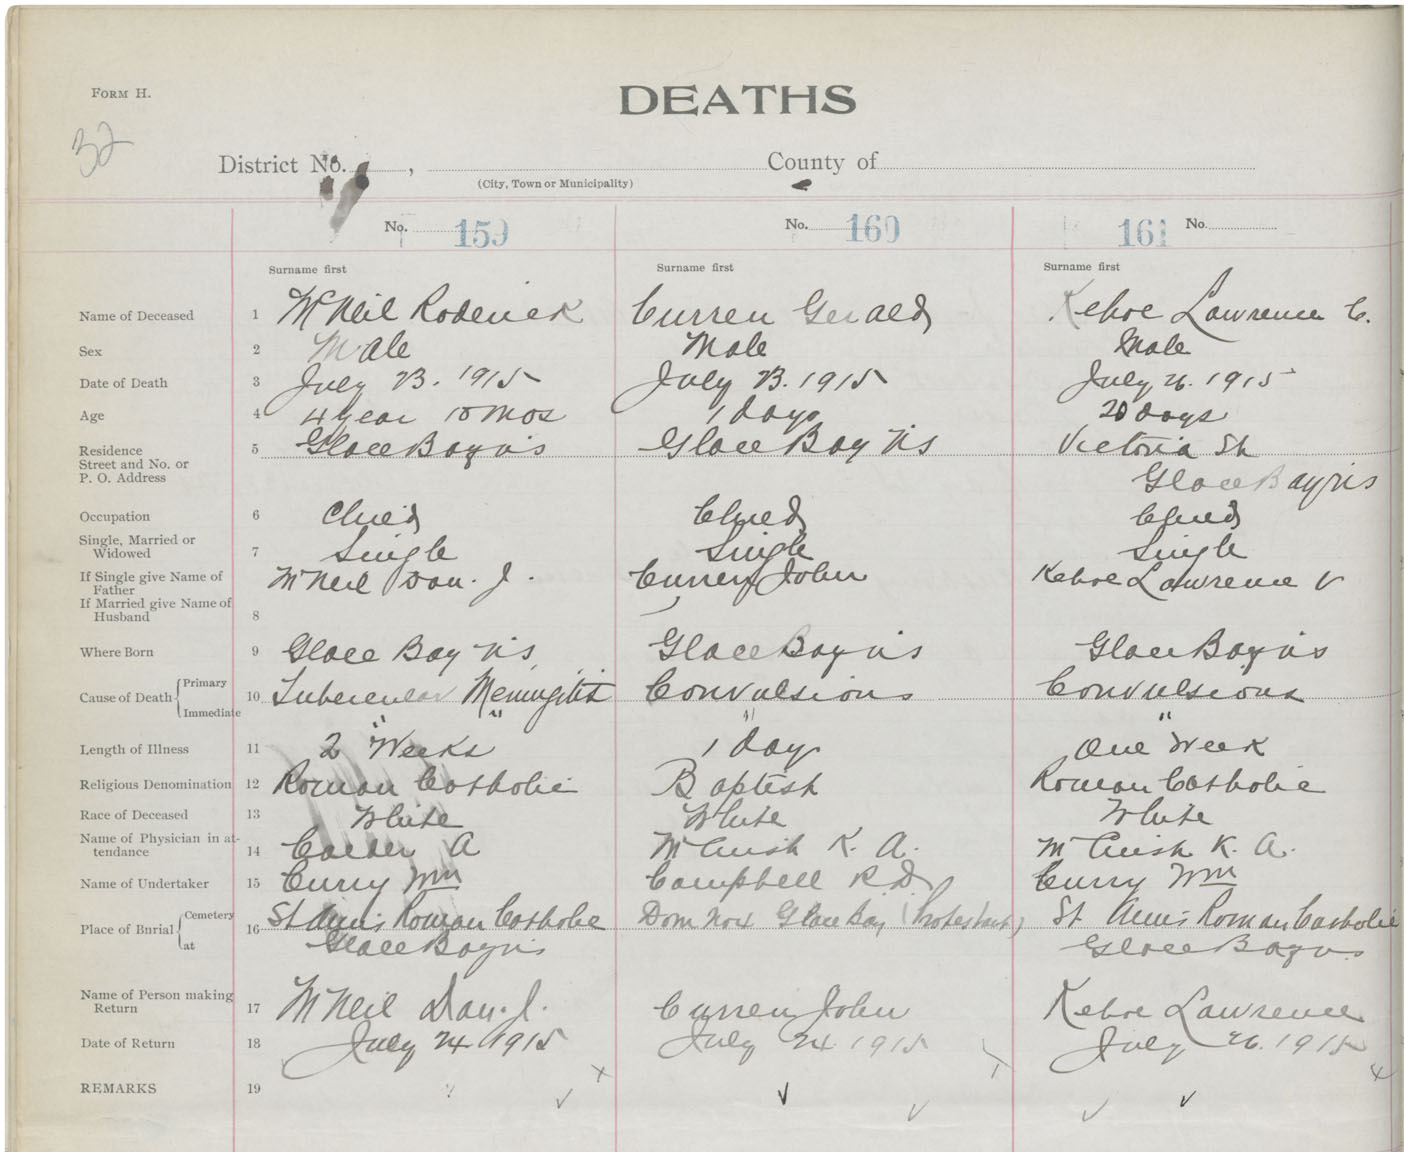 FORM H.
DEATHS
32
District No. , County of
(City, Town or Municipality)
No. 159 No. 160 161 No.
Surname first Surname first Surname first
Name of Deceased 1 McNeil Roderick Curren Gerald Kehoe Lawrence C.
Sex 2 Male Male Male
Date of Death 3 July 23. 1915 July 23. 1915 July 26. 1915
Age 4 4 year 10 mos 1 day 20 days
Residence 5 Glace Bay NS Glace Bay NS Victoria St
Street and No. or
P. O. Address Glace Bay NS
Occupation 6 Child Child Child
Single, Married or
Widowed 7 Single Single Single
If Single give Name of McNeil Dan. J. Curren John Kehoe Lawrence V
Father
If Married give Name of
Husband 8
Where Born 9 Glace Bay NS Glace Bay NS Glace Bay NS
Cause of Death Primary 10 Tubercular Meningitis Convulsions Convulsions
Immediate " " " "
Length of Illness 11 2 Weeks 1 day One Week
Religious Denomination 12 Roman Catholic Baptist Roman Catholic
Race of Deceased 13 White White White
Name of Physician in at-
tendance 14 Calder A McCuish K. A. McCuish K. A.
Name of Undertaker 15 Curry Wm Campbell R D Curry Wm
Place of Burial Cemetery 16 St Ann's Roman Catholic Dom No 4 Glace Bay (Protestant) St Ann's Roman Catholic
at Glace Bay NS Glace Bay NS
Name of Person making
Return 17 McNeil Dan. J. Curren John Kehoe Lawrence
Date of Return 18 July 24 1915 July 24 1915 July 26. 1915
REMARKS 19